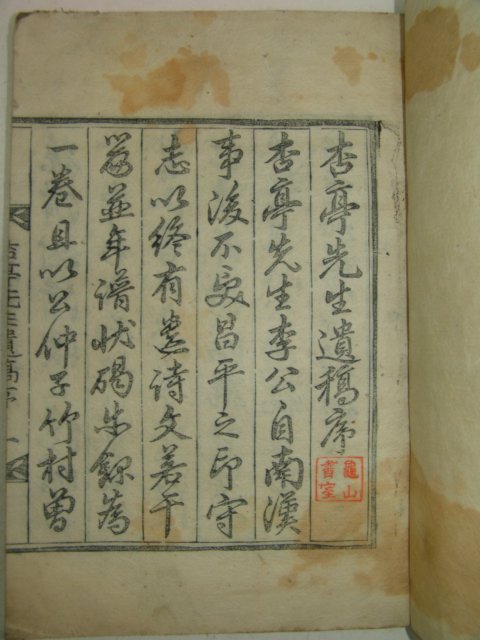 杏亭先生遺稿序
杏亭先生李公自南漢
事後不受昌平之印守
志以終有遺詩文若干
篇並年譜狀碣錄為
一卷且以公仲子竹村曾
杏亭先生遺稿序 一
龜山
室